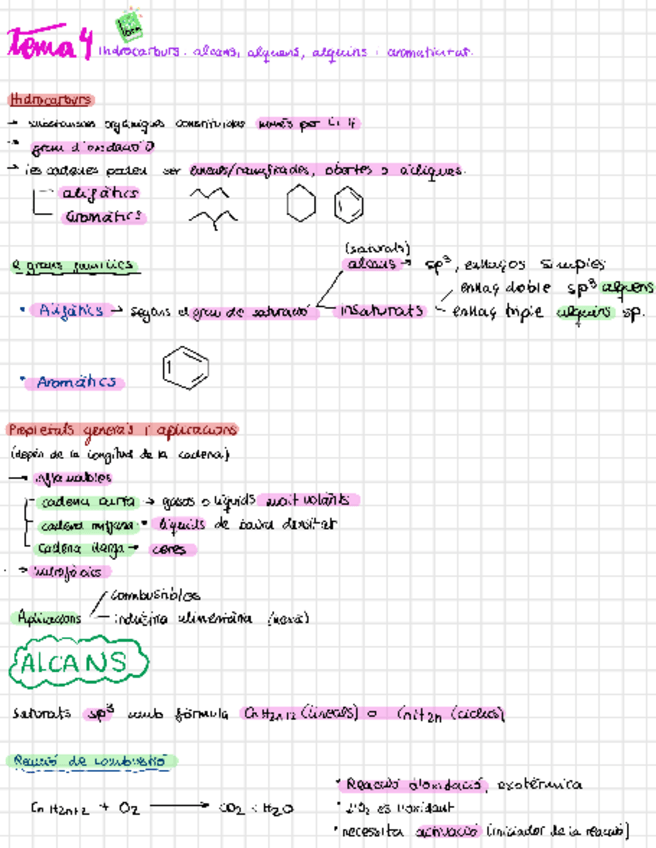 Tema 4 Hidrocarburs. alcans, alquens, alquins i aromaticitat.
Hidrocarburs
→ substàncies orgàniques constituïdes només per C i H
→ grau d'oxidació
→ les cadenes poden ser lineals/ramificades, obertes o cícliques.
alifàtics
aromàtics
2 grans famílies
(saturats)
alcans → sp³, enllaços simples
enllaç doble sp³ alquens
• Alifàtics → segons el grau de saturació insaturats enllaç triple alquins sp.
• Aromàtics
Propietats generals i aplicacions
(depèn de la longitud de la cadena)
→ inflamables
cadena curta → gasos o líquids molt volàtils
cadena mitjana • líquids de baixa densitat
cadena llarga → ceres
→ hidrofòbics
combustibles
Aplicacions indústria alimentària (hexà)
ALCANS
saturats sp³ amb fórmula CnH2n+2 (lineals) o CnH2n (cicles)
Reacció de combustió
• Reacció d'oxidació, exotèrmica
CnH2n+2 + O2 → CO2 + H2O • L'O2 és l'oxidant
• necessita activació (iniciador de la reacció)